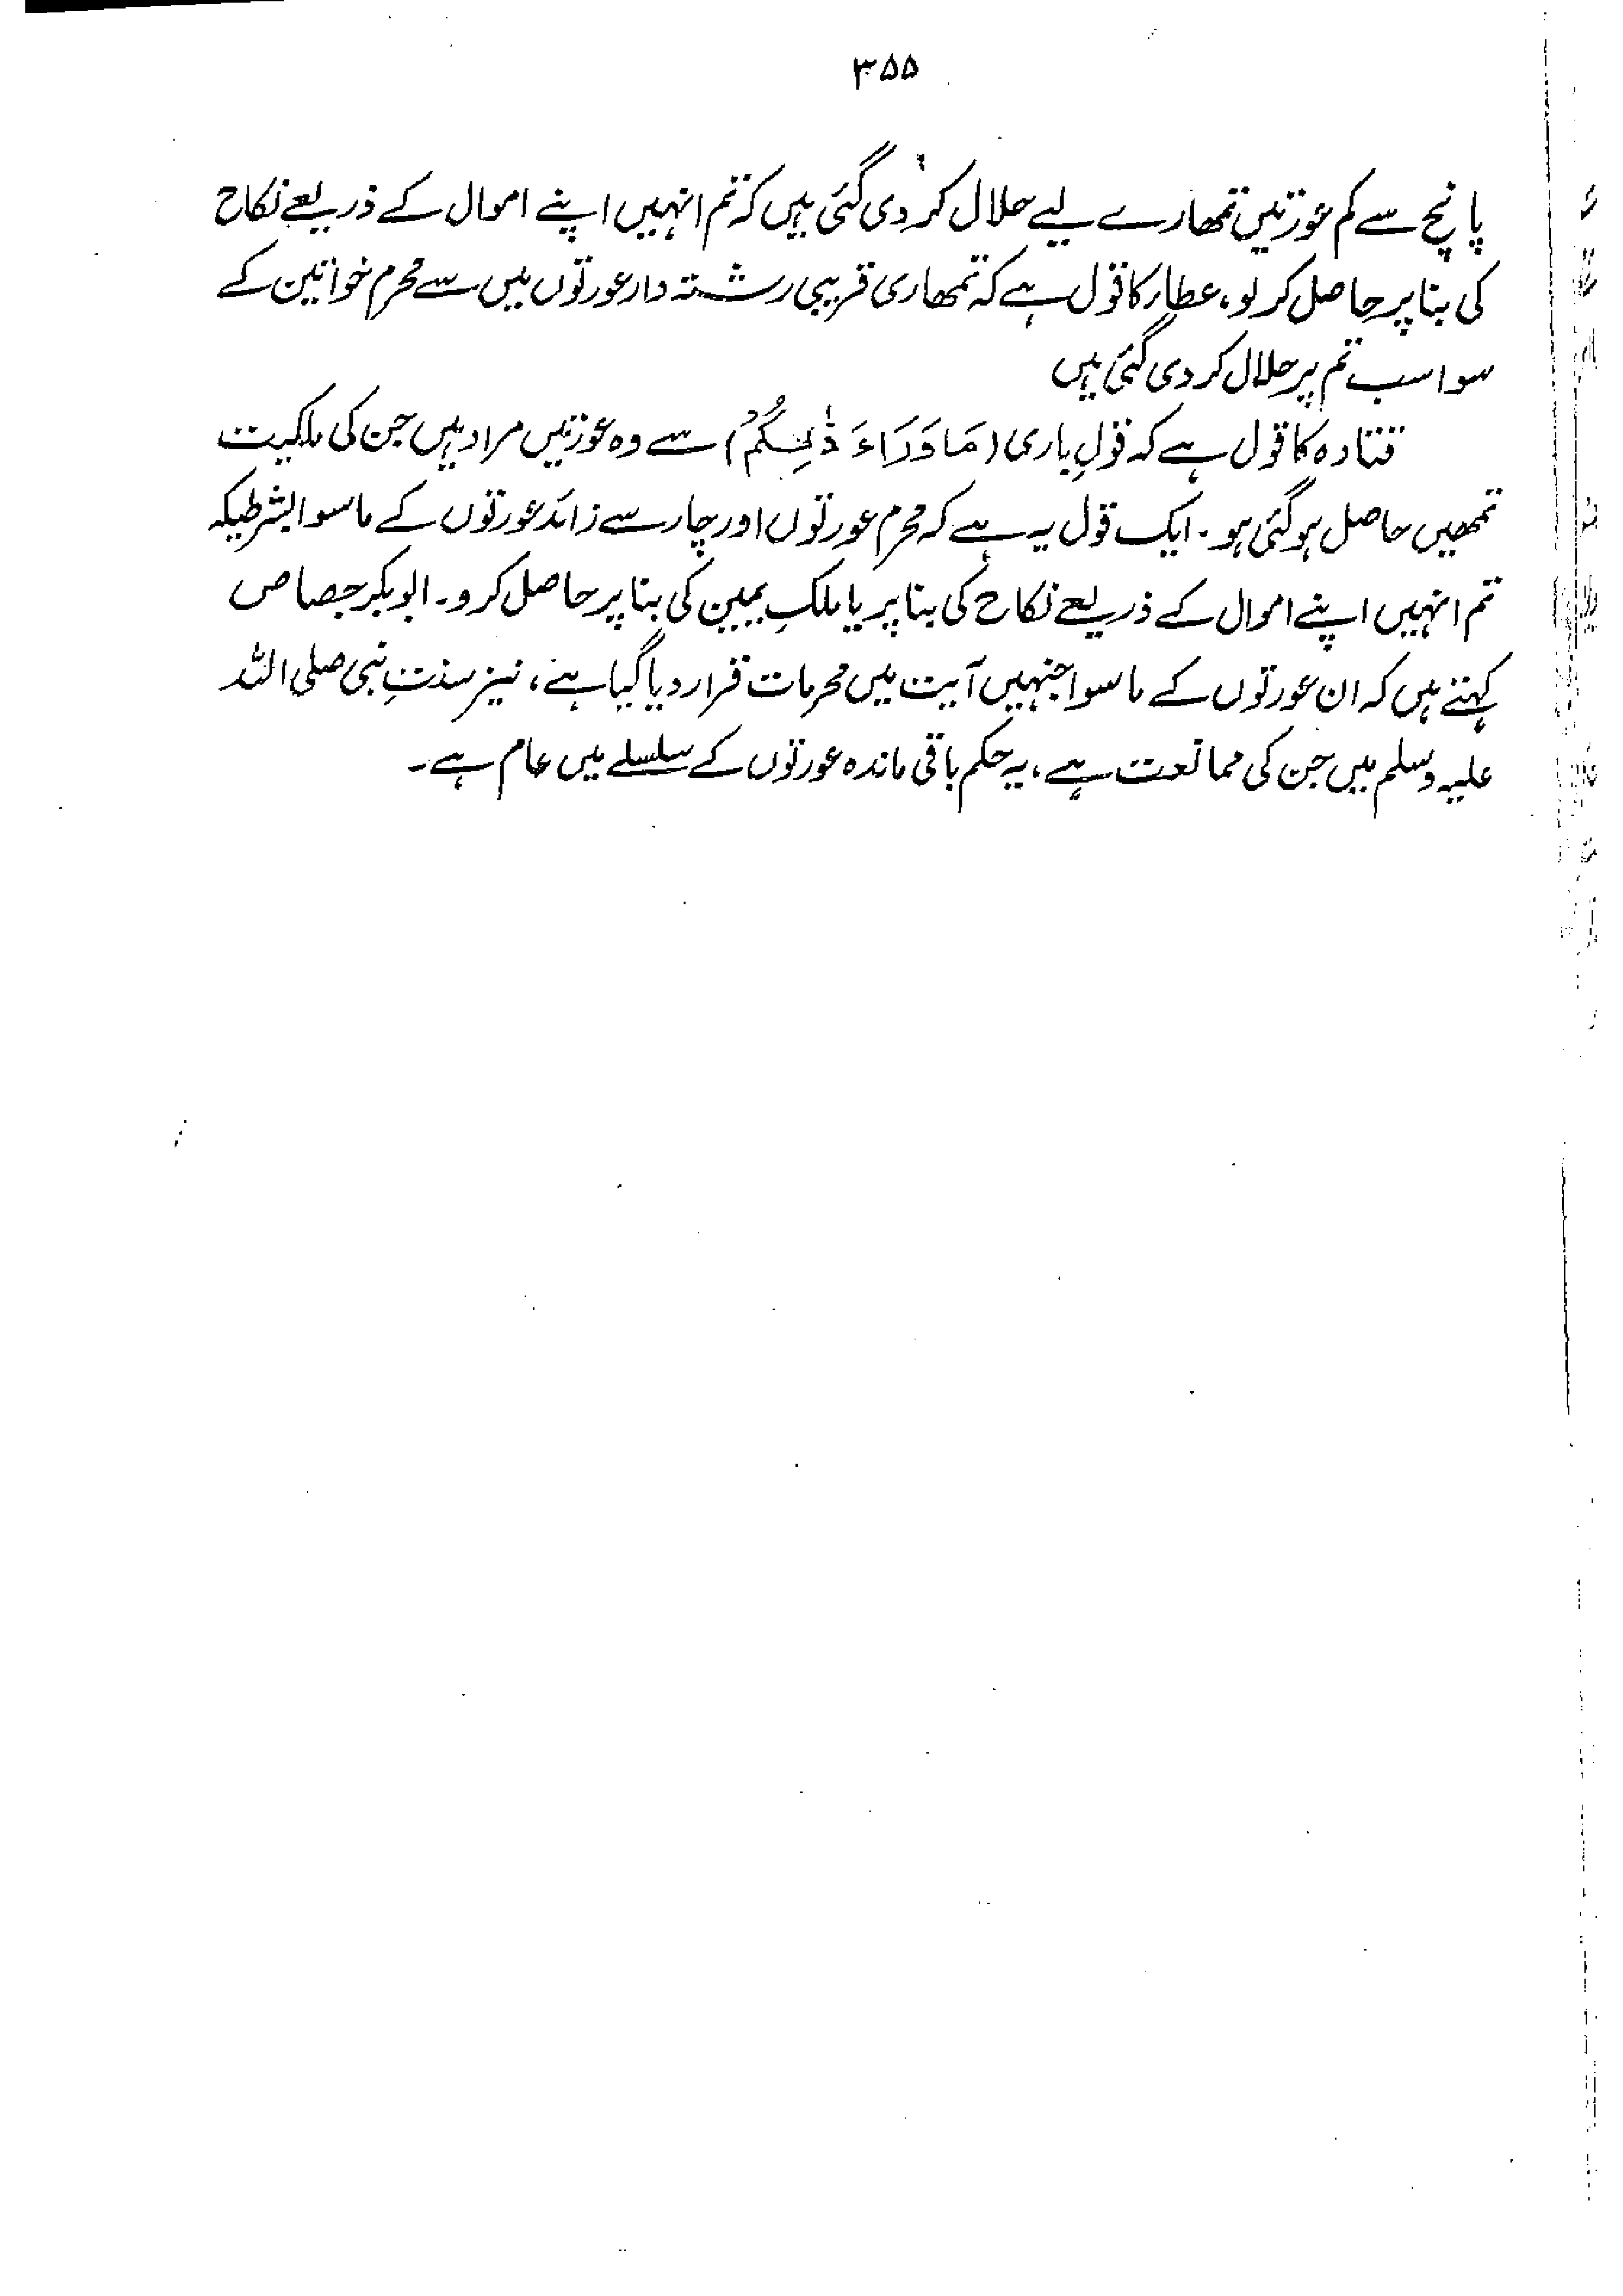 ۳۵۵
پانچ سے کم عورتیں تمھارے لیے حلال کر دی گئی ہیں کہ تم انہیں اپنے اموال کے ذریعے نکاح
کی بنا پر حاصل کر لو، عطار کا قول ہے کہ تمھاری قریبی رشتہ دار عورتوں میں سے محرم خواتین کے
سوا سب تم پر حلال کر دی گئی ہیں
قتادہ کا قول ہے کہ قولِ باری (مَا وَرَاءَ ذٰلِکُمْ) سے وہ عورتیں مراد ہیں جن کی ملکیت
تمھیں حاصل ہو گئی ہو۔ ایک قول یہ ہے کہ محرم عورتوں اور چار سے زائد عورتوں کے ماسوا بشرطیکہ
تم انہیں اپنے اموال کے ذریعے نکاح کی بنا پر یا ملکِ یمین کی بنا پر حاصل کرو۔ ابوبکر جصاص
کہتے ہیں کہ ان عورتوں کے ماسوا جنہیں آیت میں محرمات قرار دیا گیا ہے، نیز سنتِ نبی صلی اللہ
علیہ وسلم میں جن کی ممانعت ہے، یہ حکم باقی ماندہ عورتوں کے سلسلے میں عام ہے۔